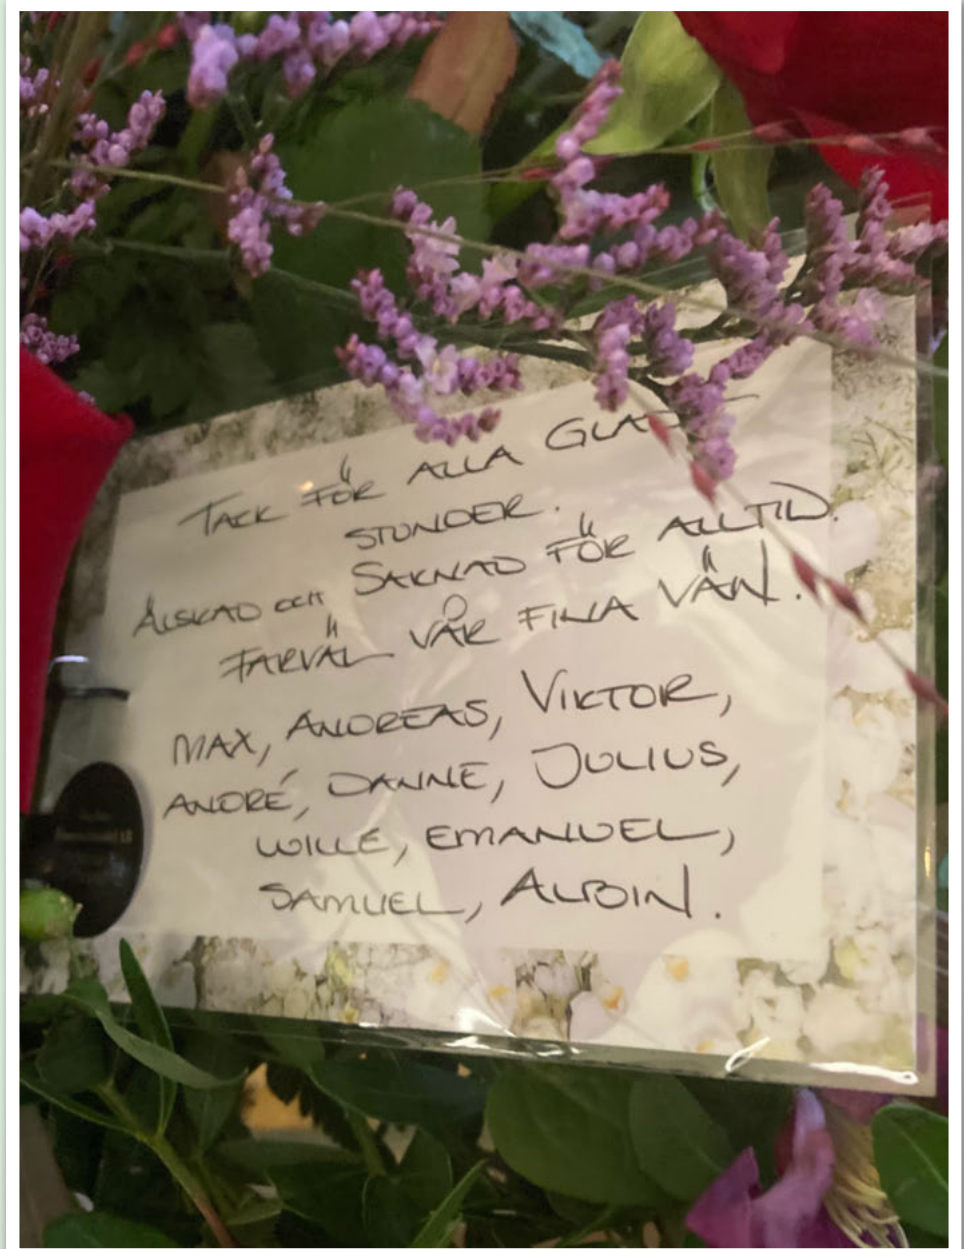 TACK FÖR ALLA
STUNDER.
ÄLSKAD OCH SAKNAD FÖR ALLTID.
FARVÄL VÅR FINA VÄN.
MAX, ANDREAS, VIKTOR,
ANDRÉ, DANNE, JULIUS,
WILLE, EMANUEL,
SAMUEL, ALBIN.